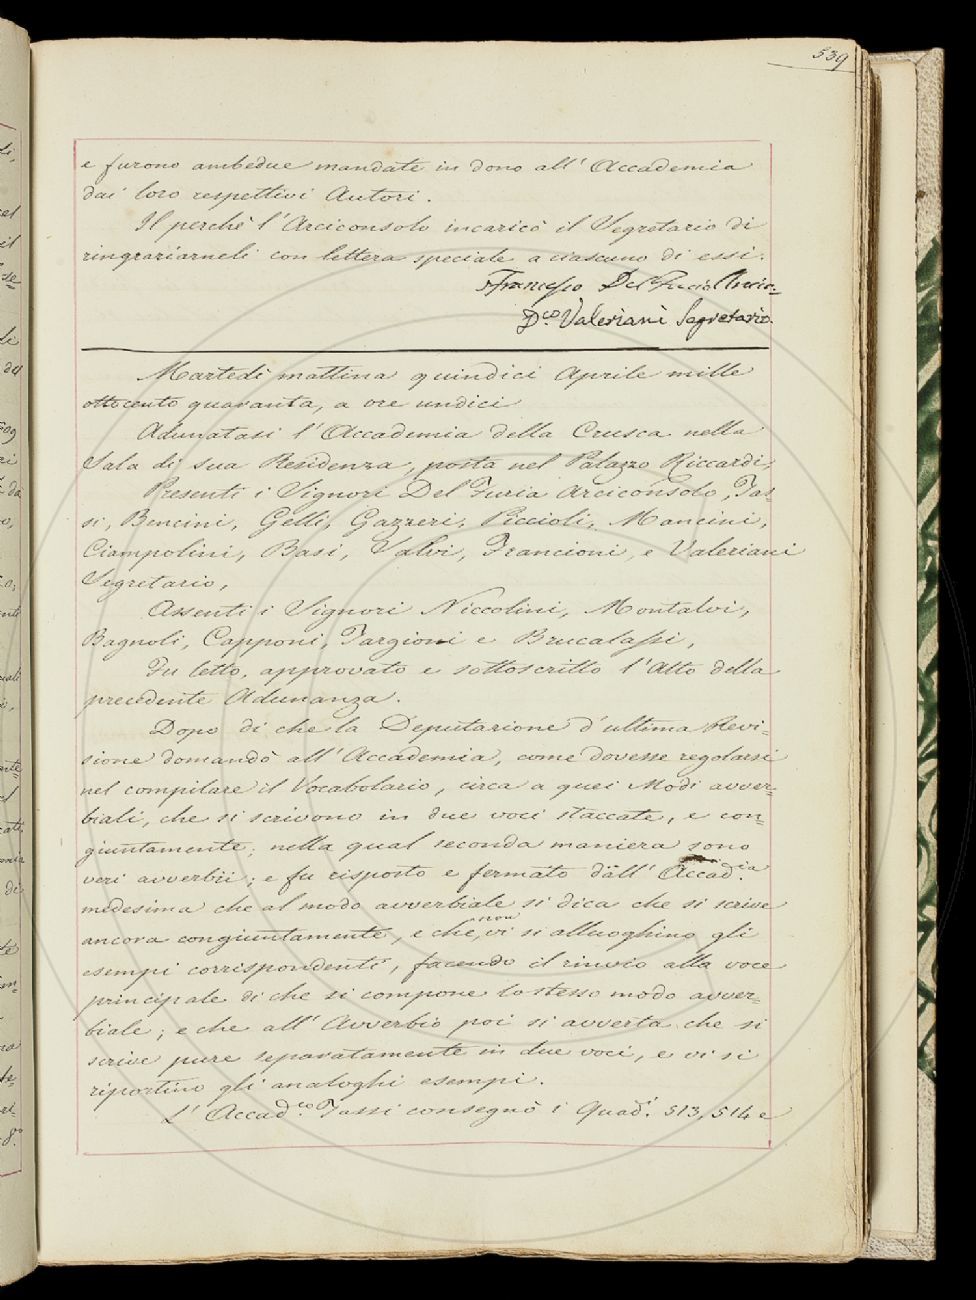 539
e furono ambedue mandate in dono all' Accademia
dai loro respettivi Autori.
Il perchè l'Arciconsolo incaricò il Segretario di
ringraziarneli con lettera speciale a ciascuno di essi.
Francesco Del Furia Arcic=
D.co Valeriani Segretario.
Martedì mattina quindici Aprile mille
ottocento quaranta, a ore undici
Adunatasi l'Accademia della Crusca nella
Sala di sua Residenza, posta nel Palazzo Riccardi,
Presenti i Signori Del Furia Arciconsolo, Tas=
si, Bencini, Gelli, Gazzeri, Piccioli, Mancini,
Ciampolini, Basi, Salvi, Francioni, e Valeriani
Segretario,
Assenti i Signori Niccolini, Montalvi,
Bagnoli, Capponi, Targioni e Brucalassi,
Fu letto, approvato e sottoscritto l'Atto della
precedente Adunanza.
Dopo di che la Deputazione d'ultima Revi=
sione domandò all'Accademia, come dovesse regolarsi
nel compilare il Vocabolario, circa a quei Modi avver=
biali, che si scrivono in due voci staccate, e con=
giuntamente; nella qual seconda maniera sono
veri avverbii; e fu risposto e fermato dall' Accad.ia
medesima che al modo avverbiale si dica che si scrive
ancora congiuntamente, e che non vi si alluoghino gli
esempi corrispondenti, facendo il rinvio alla voce
principale di che si compone lo stesso modo avver=
biale; e che all' Avverbio poi si avverta che si
scrive pure separatamente in due voci, e vi si
riportino gli analoghi esempi.
L' Accad.co Tassi consegnò i Quad.i 513, 514 e